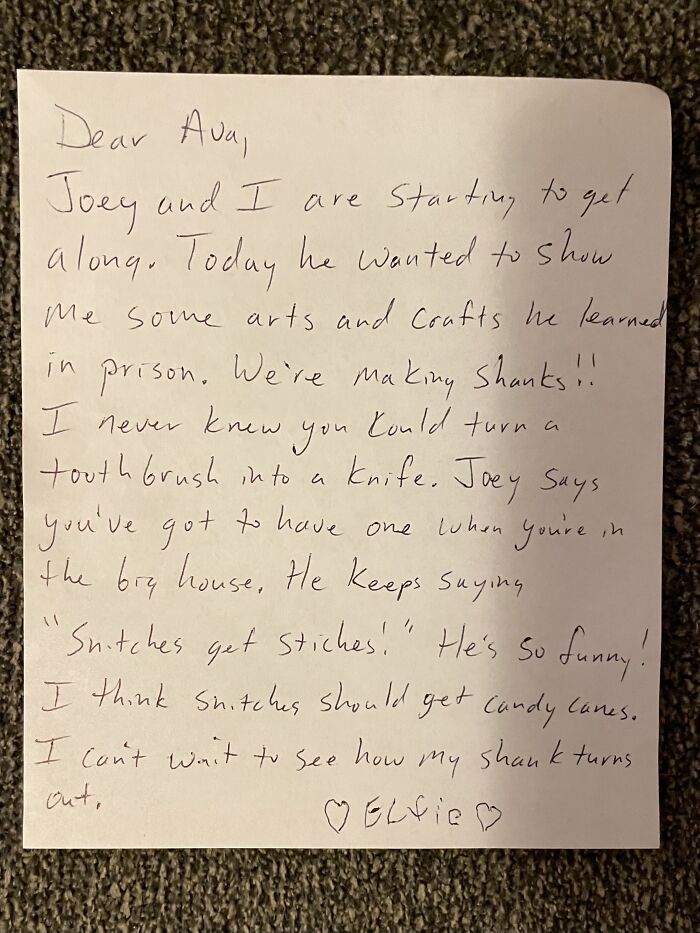 Dear Ava,
Joey and I are starting to get
along. Today he wanted to show
me some arts and crafts he learned
in prison. We're making shanks!!
I never knew you could turn a
toothbrush into a knife. Joey says
you've got to have one when you're in
the big house. He keeps saying
"Snitches get stiches!" He's so funny!
I think snitches should get candy canes.
I can't wait to see how my shank turns
out.
♡ ELfie ♡